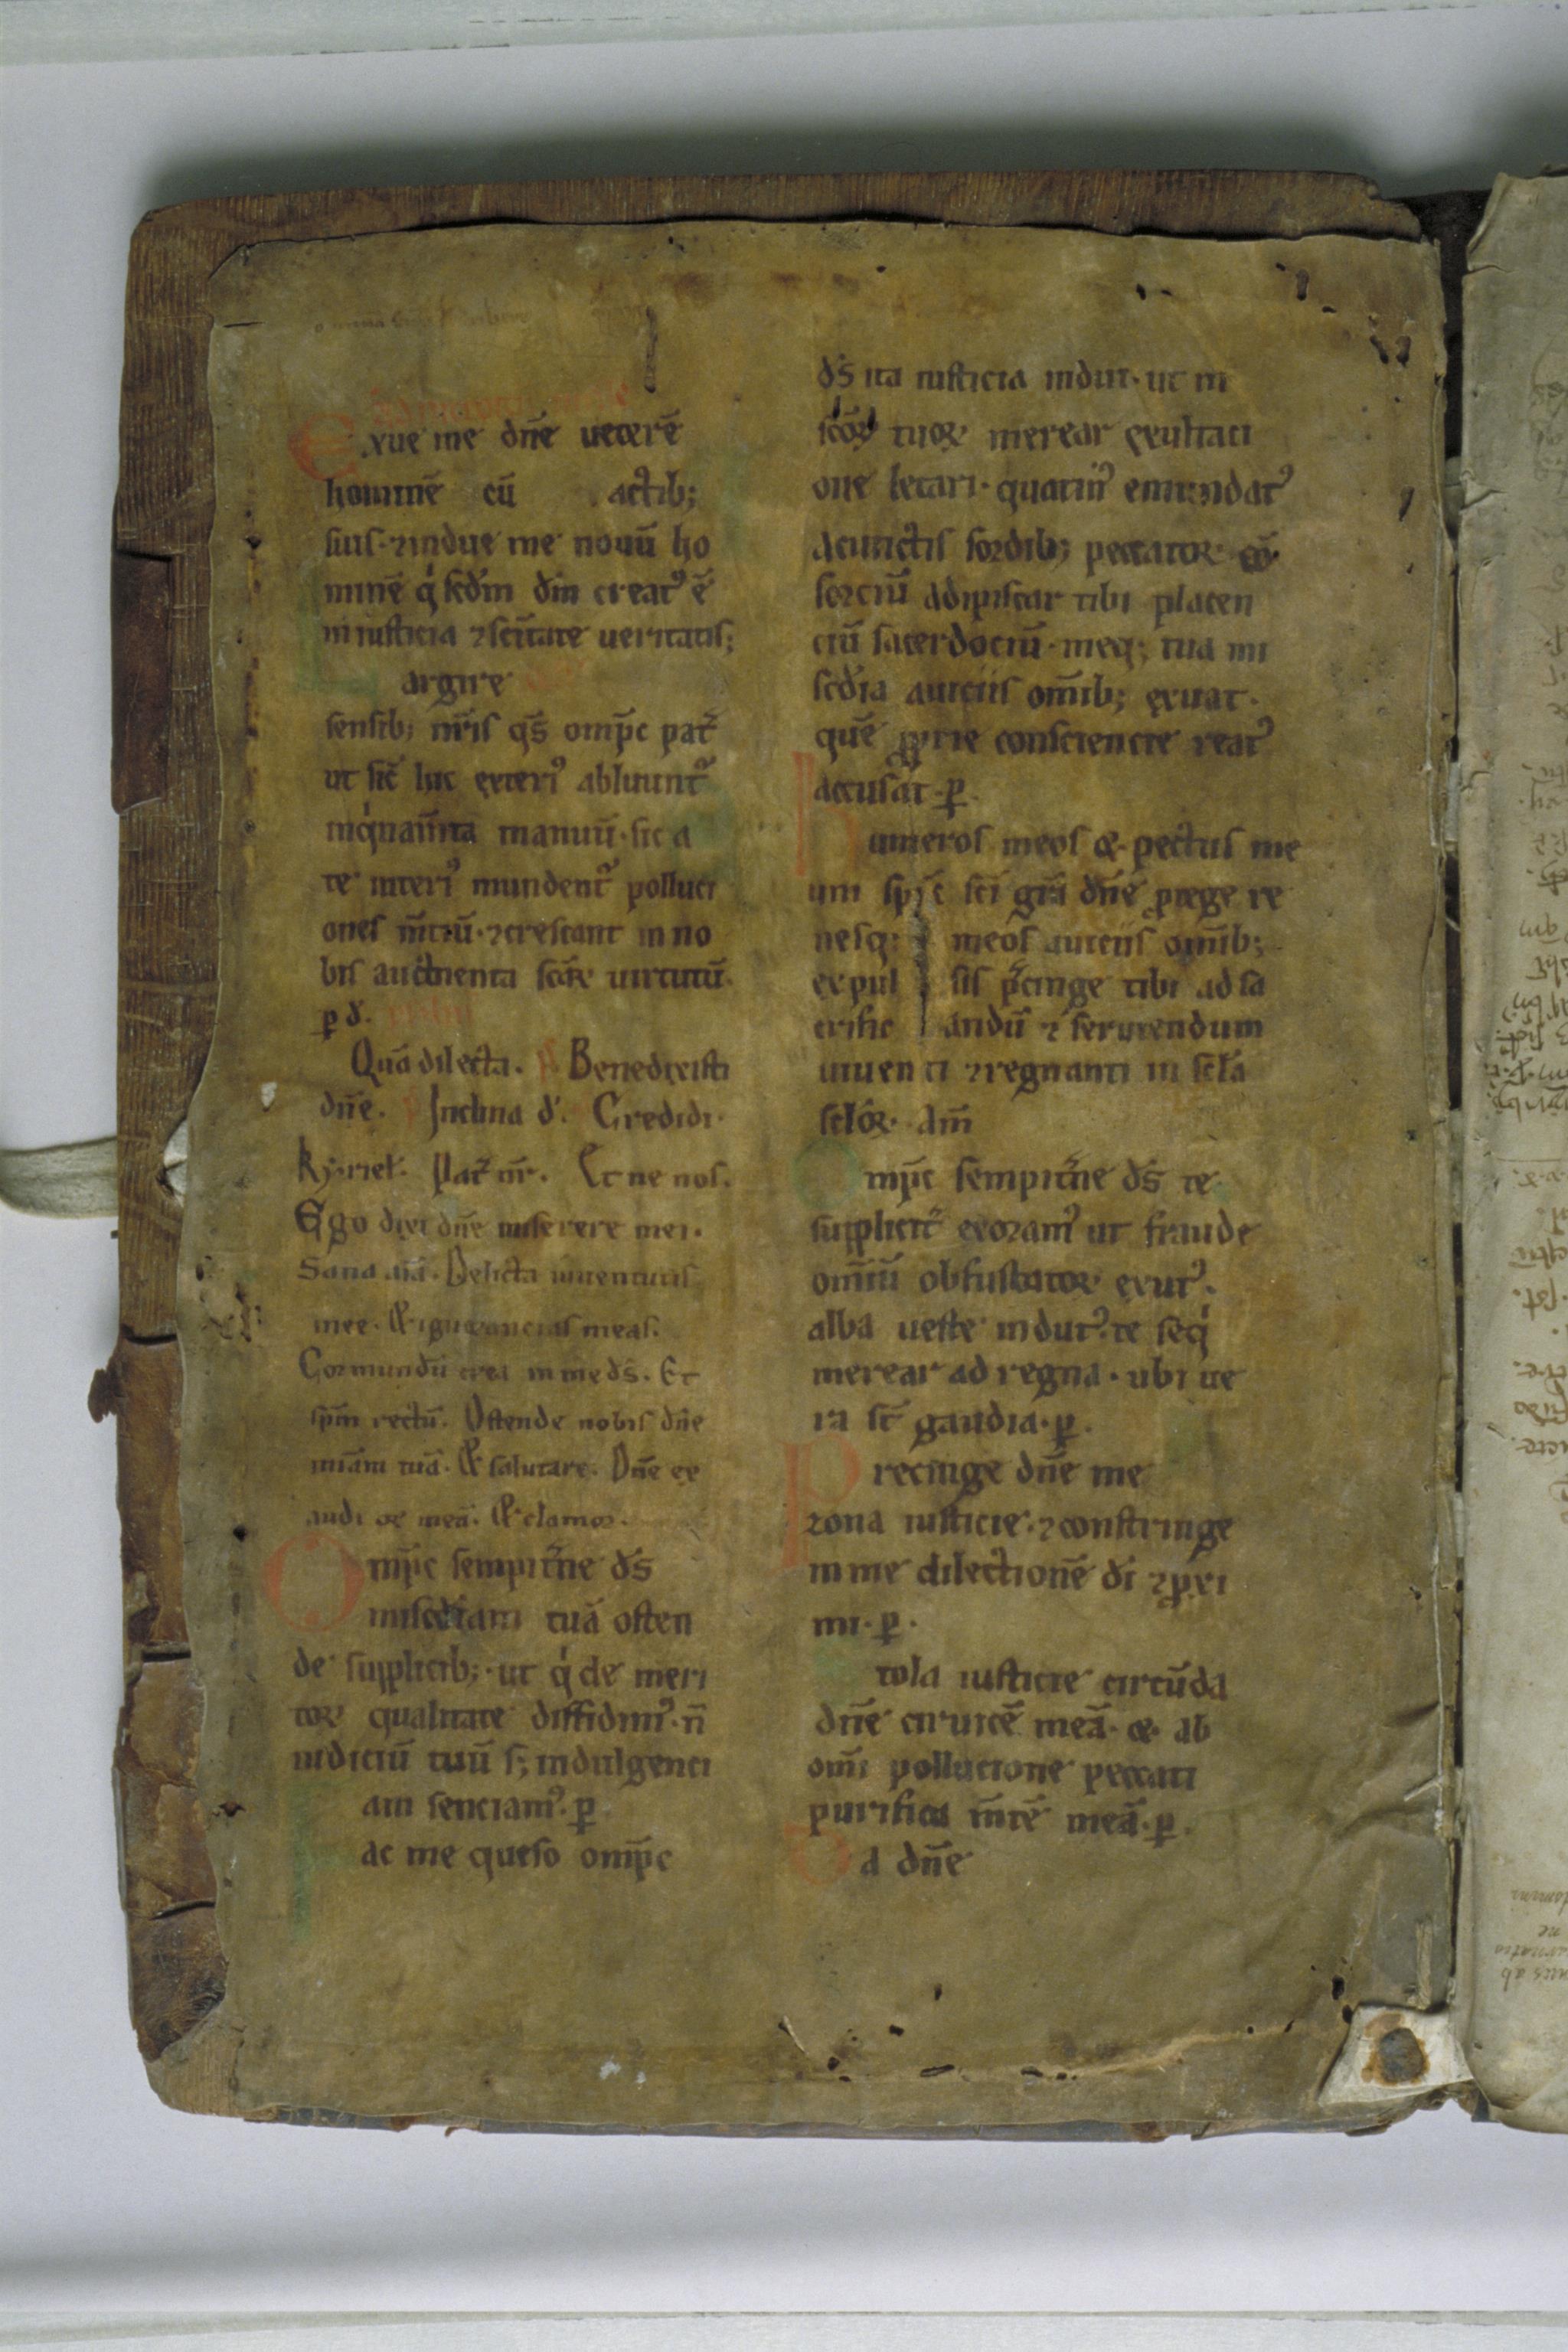 Exue me dn̄e ueterē
hominē cū actib;
suis· ⁊indue me nouū ho
minē q̍ scd̄m dm̄ creat᾿ ē
in iusticia ⁊scītate ueritatis;
Largire
sensib; nr̄is qs̄ omp̄c pat̄
ut sic̄ hic exteri᾿ abluunt᾿
inq̍nam̄ta manuū· sic a
te interi᾿ mundent᾿ polluci
ones m̄tiū· ⁊crescant in no
bis aucmenta scāꝝ uirtutū·
p d̄.
Quā dilecta. Benedixisti
dn̄e. Inclina d̄. Credidi.
kyriel. Pat̄ nr̄. Et ne nos.
Ego dixi dn̄e miserere mei.
Sana aīā. Delicta iuuentutis
mee. & ignorancias meas.
Cor mundū crea in me ds̄. Et
spm̄ rectū. Ostende nobis dn̄e
miām tuā. & salutare. Dn̄e ex
audi or̄ meā. & clamor.
Omp̄c sempit̄ne ds̄
misc̄diam tuā osten
de supplicib; ut q̍ de meri
toꝝ qualitate diffidim᾿· n̄
iudiciū tuū s; indulgenci
am senciam᾿· ꝑ
Fac me queso omp̄c
ds̄ ita iusticia indui· ut in
scōꝝ tuoꝝ merear exultaci
one letari· quatin᾿ emundat᾿
a cunctis sordib; peccatoꝝ cō
sorciū adipiscar tibi placen
ciū sacerdociū· meq; tua mi
sc̄dia a uiciis om̄ib; exuat·
quē pprie consciencie reat᾿
accusat· ꝑ.
Humeros meos & pectus me
um sp̄c scī grā dn̄e ptege re
nesq; meos a uiciis om̄ib;
expulsis p̄cinge tibi ad sa
crificandū ⁊ seruiendum
uiuenti ⁊regnanti in scl̄a
scl̄oꝝ. am̄
Omp̄c sempit̄ne ds̄ te
supplicit̄ exoram᾿ ut fraude
om̄iū obfuscatoꝝ exut᾿·
alba ueste indut᾿ te seq̍
merear ad regna· ubi ue
ra st̄ gaudia· ꝑ.
Precinge dn̄e me
zona iusticie· ⁊constringe
in me dilectionē dī ⁊pxi
mi· ꝑ.
Stola iusticie circūda
dn̄e ceruicē meā· & ab
om̄i pollucione peccati
purifica m̄tē meā· ꝑ.
Da dn̄e